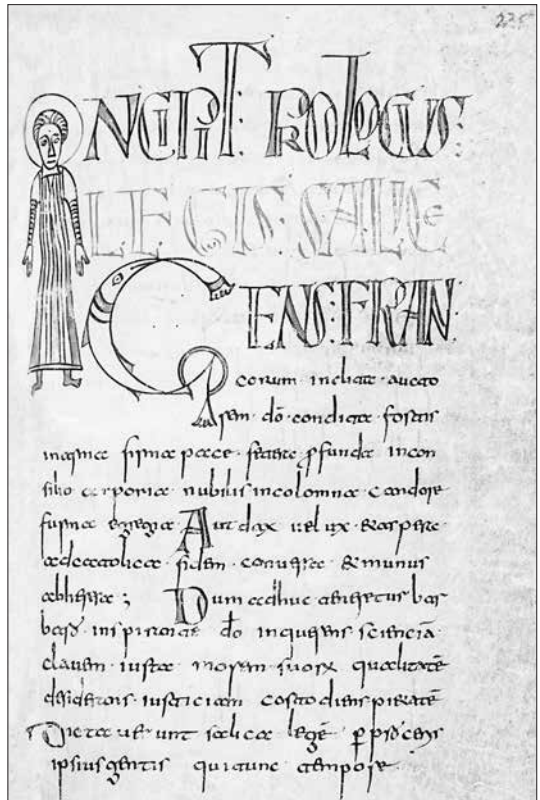 235
INCIPIT PROLOGUS:
LEGIS: SALICE
GENS: FRAN
corum · inclita · aucto
rem · dō · condita · fortis
in arma firma pace · fetere · ꝓfunda in con
silio corporia · nubilis incolomna candore
forma egregia · Audax uelux · & aspera
fidem · conuersa · & munus
ab heresa ; Dum adhuc teneretus bar
bara · inspirante · dō inquerens sciencia
clauem · iusta · morem · suorum qualitatē
desiderans · iusticiam costodiens pietatē
Dictauerunt salica legē ꝑ
ipsius gentis qui tunc tempore